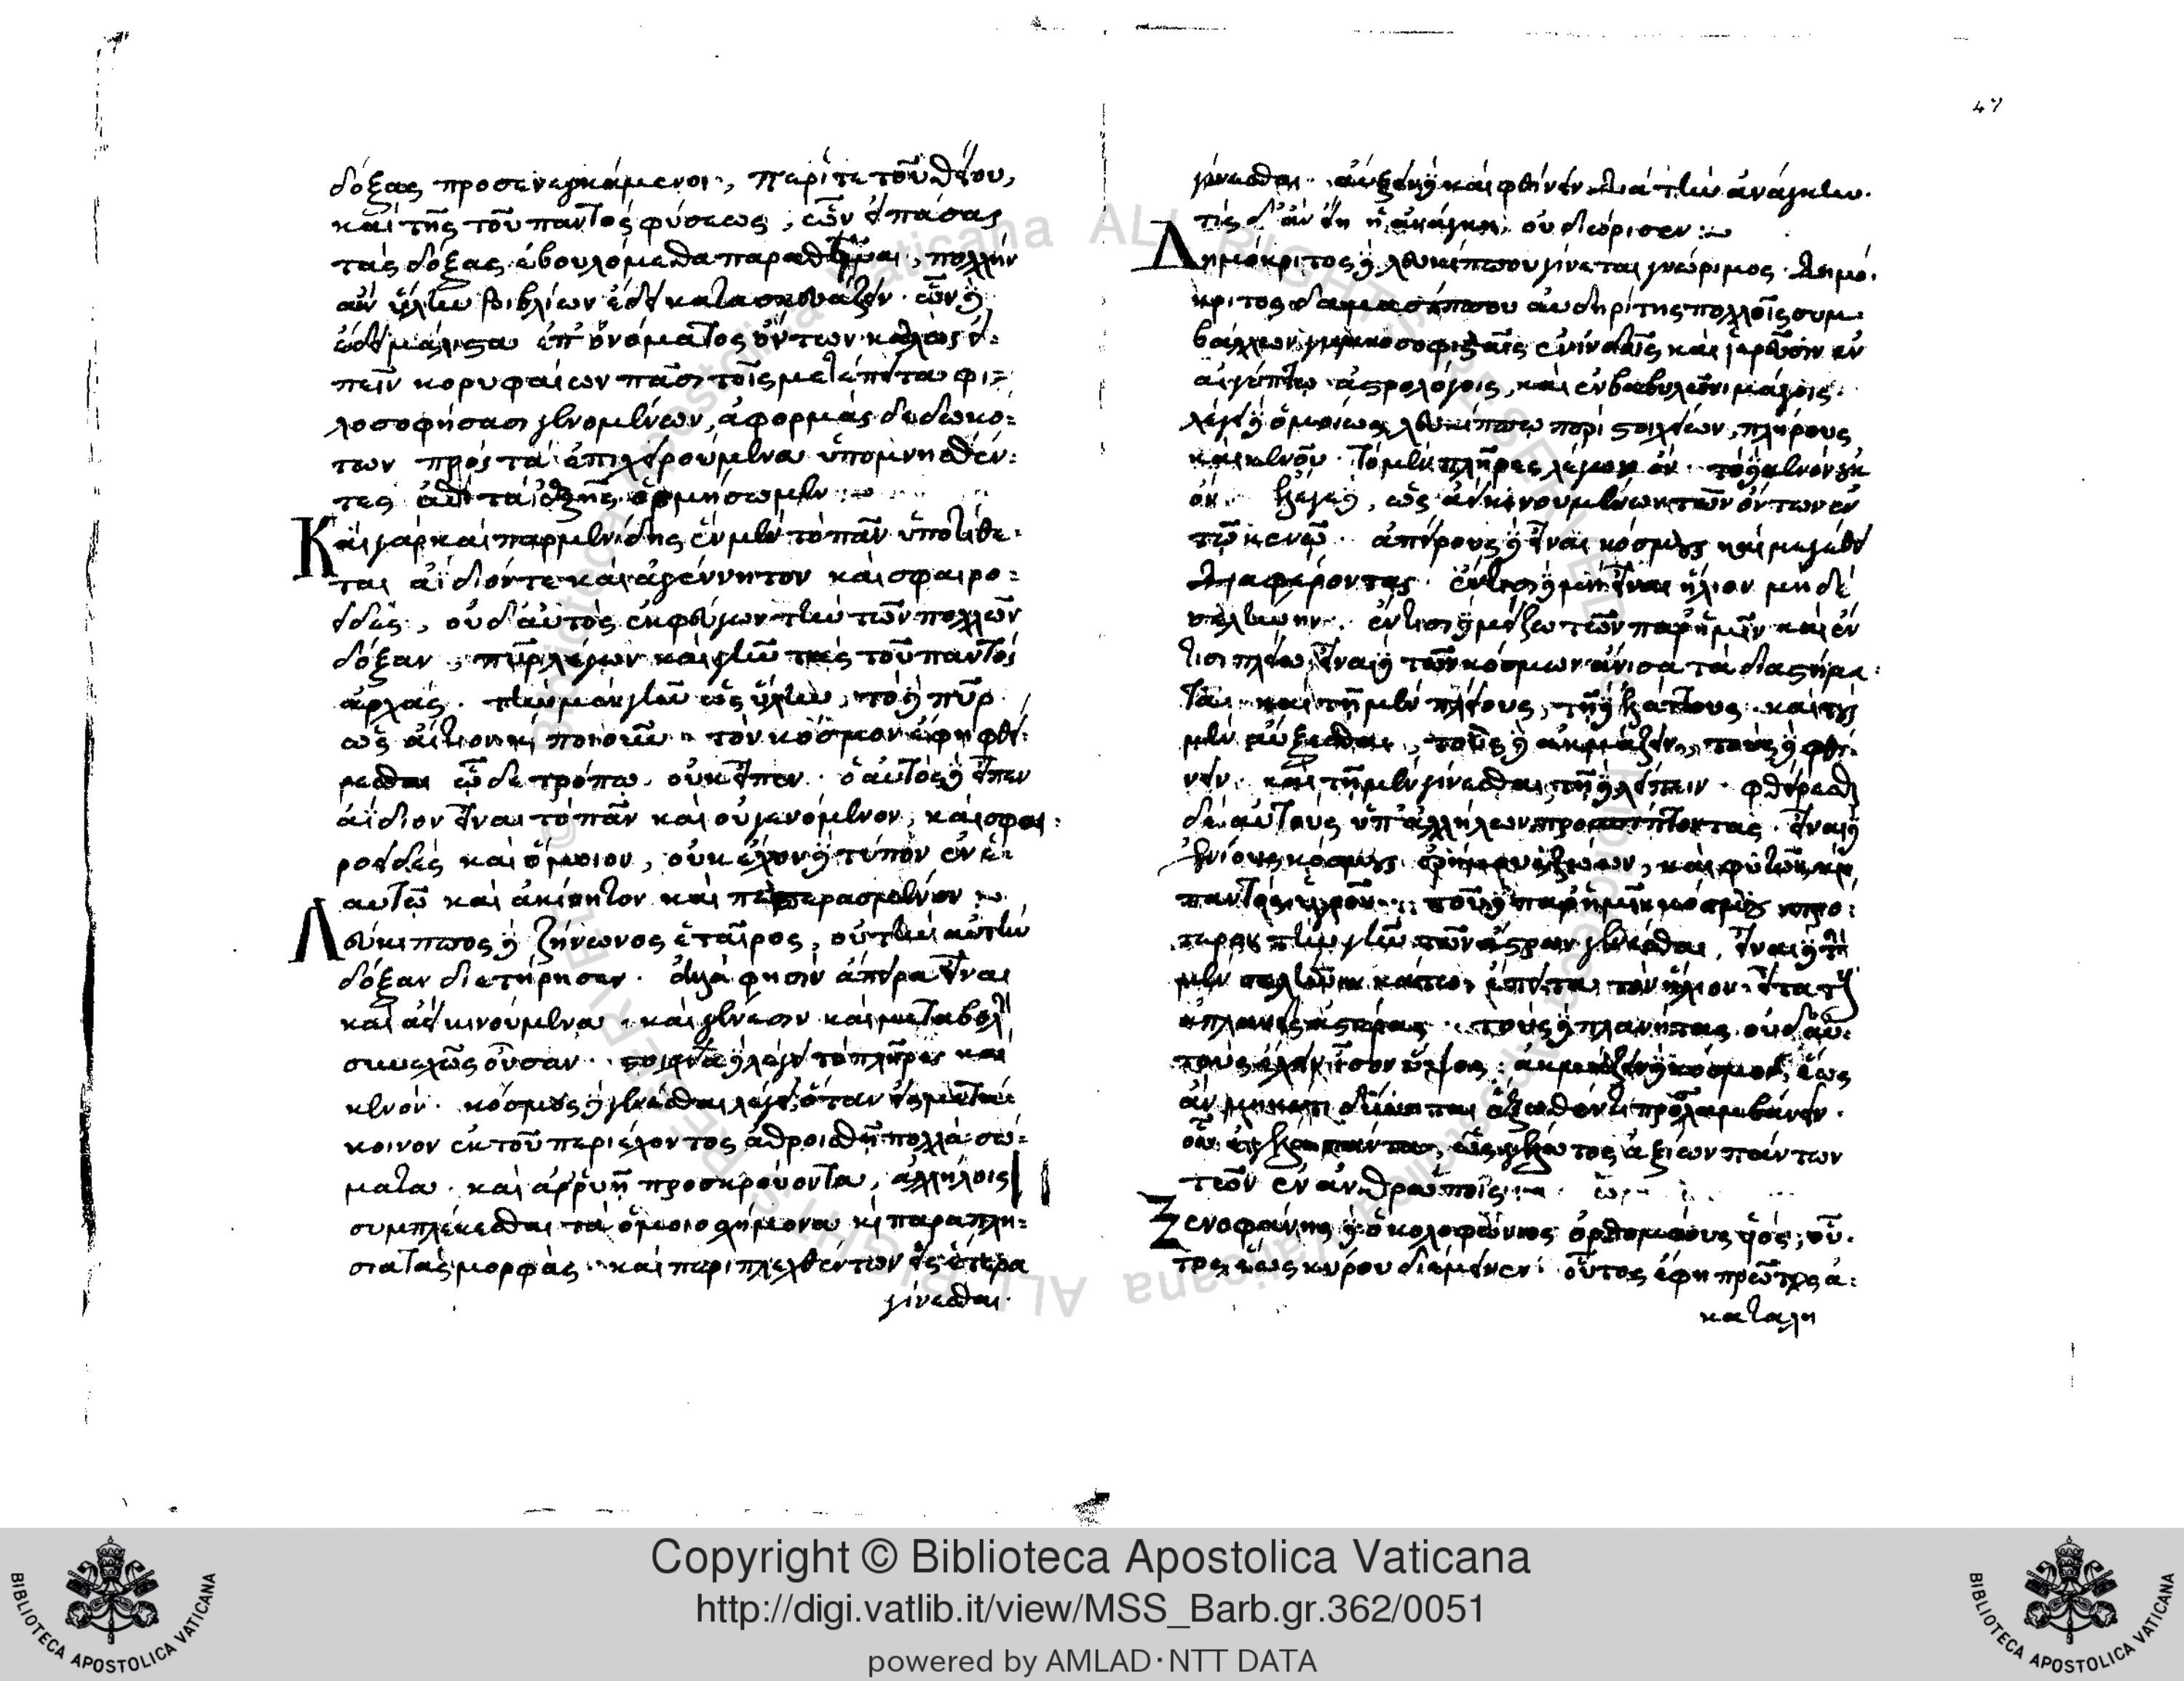 47
δόξας προσενεγκάμενοι, περί τε τοῦ θείου,
καὶ τῆς τοῦ παντὸς φύσεως, ὧν ἁπάσας
τὰς δόξας ἐβουλόμεθα παραθέσθαι, πολλὴν
ἂν ὕλην βιβλίων ἔδει κατασκευάζειν. ὧν δὲ
ἔδει μάλιστα ἐπ' ὀνόματος ὄντων
πεῖν κορυφαίων πᾶσι τοῖς μετέπειτα φι=
λοσοφήσασι γενομένων, ἀφορμὰς δεδωκό=
των πρὸς τὰ ἐπιχειρούμενα ὑπομνησθέν=
τες ἐπὶ τὰ ἑξῆς ὁρμήσωμεν :
Καὶ γὰρ καὶ παρμενίδης ἓν μὲν τὸ πᾶν ὑποτίθε=
ται ἀΐδιόν τε καὶ ἀγέννητον καὶ σφαιρο=
ειδὲς, οὐδ' αὐτὸς ἐκφεύγων τὴν τῶν πολλῶν
δόξαν, πῦρ λέγων καὶ γῆν τὰς τοῦ παντὸς
ἀρχάς. τὴν μὲν γῆν ὡς ὕλην, τὸ δὲ πῦρ
ὡς αἴτιον καὶ ποιοῦν. τὸν κόσμον ἔφη φθεί=
ρεσθαι ᾧ δὲ τρόπῳ. οὐκ εἶπεν. ὁ αὐτὸς δὲ εἶπεν
ἀΐδιον εἶναι τὸ πᾶν καὶ οὐ γενόμενον, καὶ σφαι=
ροειδὲς καὶ ὅμοιον, οὐκ ἔχον δὲ τόπον ἐν ἑ=
αυτῷ καὶ ἀκίνητον καὶ πεπερασμένον :
Λεύκιππος δὲ ζήνωνος ἑταῖρος, οὐ τὴν αὐτὴν
δόξαν διετήρησεν. ἀλλά φησιν ἄπειρα εἶναι
καὶ ἀεὶ κινούμενα. καὶ γένεσιν καὶ μεταβολὴν
συνεχῶς οὖσαν. στοιχεῖα δὲ λέγει τὸ πλῆρες καὶ
κενόν. κόσμους δὲ γενέσθαι λέγει, ὅταν εἰς μετα
κοινον ἐκ τοῦ περιέχοντος ἀθροισθῇ πολλὰ σώ=
ματα. καὶ προσκρούοντα, ἀλλήλοις
συμπλέκεσθαι τὰ ὁμοιοσχήμονα καὶ παραπλή=
σια τὰς μορφὰς. καὶ περιπλεχθέντων εἰς ἕτερα
γίνεσθαι.
γίνεσθαι. αὔξειν δὲ καὶ φθίνειν διὰ τὴν ἀνάγκην.
τίς δ' ἂν εἴη ἡ ἀνάγκη, οὐ διώρισεν :
Δημόκριτος δὲ λευκίππου γίνεται γνώριμος. Δημό=
κριτος δαμασίππου ἀβδηρίτης πολλοῖς συμ=
βάλλων γυμνοσοφισταῖς ἐν ἰνδοῖς καὶ ἱερεῦσιν ἐν
αἰγύπτῳ ἀστρολόγοις, καὶ ἐν βαβυλῶνι μάγοις.
λέγει δὲ ὁμοίως λευκίππῳ περὶ στοιχείων, πλήρους
καὶ κενοῦ. τὸ μὲν πλῆρες λέγων ὂν. τὸ δὲ κενὸν οὐκ
ὄν. ἔλεγε δὲ, ὡς ἀεὶ κινουμένων τῶν ὄντων ἐν
τῷ κενῷ. ἀπείρους δὲ εἶναι κόσμους καὶ μεγέθει
διαφέροντας. ἔν τισι δὲ μὴ εἶναι ἥλιον μηδὲ
σελήνην. ἔν τισι δὲ μείζω τῶν παρ' ἡμῖν καὶ ἔν
τισι πλείω. εἶναι δὲ τῶν κόσμων ἄνισα τὰ διαστήμα=
τα. καὶ τῇ μὲν πλείους, τῇ δὲ ἐλάττους. καὶ τοὺς
μὲν αὔξεσθαι, τοὺς δὲ ἀκμάζειν, τοὺς δὲ φθί=
νειν. καὶ τῇ μὲν γίνεσθαι, τῇ δὲ λείπειν. φθείρεσθαι
δὲ αὐτοὺς ὑπ' ἀλλήλων προσπίπτοντας. εἶναι δὲ
ἐνίους κόσμους ἐρήμους ζῴων, καὶ φυτῶν καὶ
παντὸς ὑγροῦ. τοῦ δὲ παρ' ἡμῖν κόσμου προ=
τερον τὴν γῆν τῶν ἄστρων γενέσθαι, εἶναι δὲ τὴν
μὲν σελήνην κάτω, ἔπειτα τὸν ἥλιον. εἶτα τοὺς
ἀπλανεῖς ἀστέρας. τοὺς δὲ πλανήτας οὐδ' αὐ=
τοὺς ἔχειν ἴσον ὕψος. ἀκμάζειν δὲ κόσμον, ἕως
ἂν μηκέτι δύνηται ἔξωθέν τι προσλαμβάνειν.
οὗτος ἐγέλα πάντα, ὡς γέλωτος ἀξίων πάντων
τῶν ἐν ἀνθρώποις :
Ξενοφάνης δὲ ὁ κολοφώνιος ὀρθομένους υἱός, οὗ=
τος ἕως κύρου διέμεινεν. οὗτος ἔφη πρῶτος ἀ=
καταλη
Copyright © Biblioteca Apostolica Vaticana
http://digi.vatlib.it/view/MSS_Barb.gr.362/0051
powered by AMLAD·NTT DATA
BIBLIOTECA APOSTOLICA VATICANA
BIBLIOTECA APOSTOLICA VATICANA